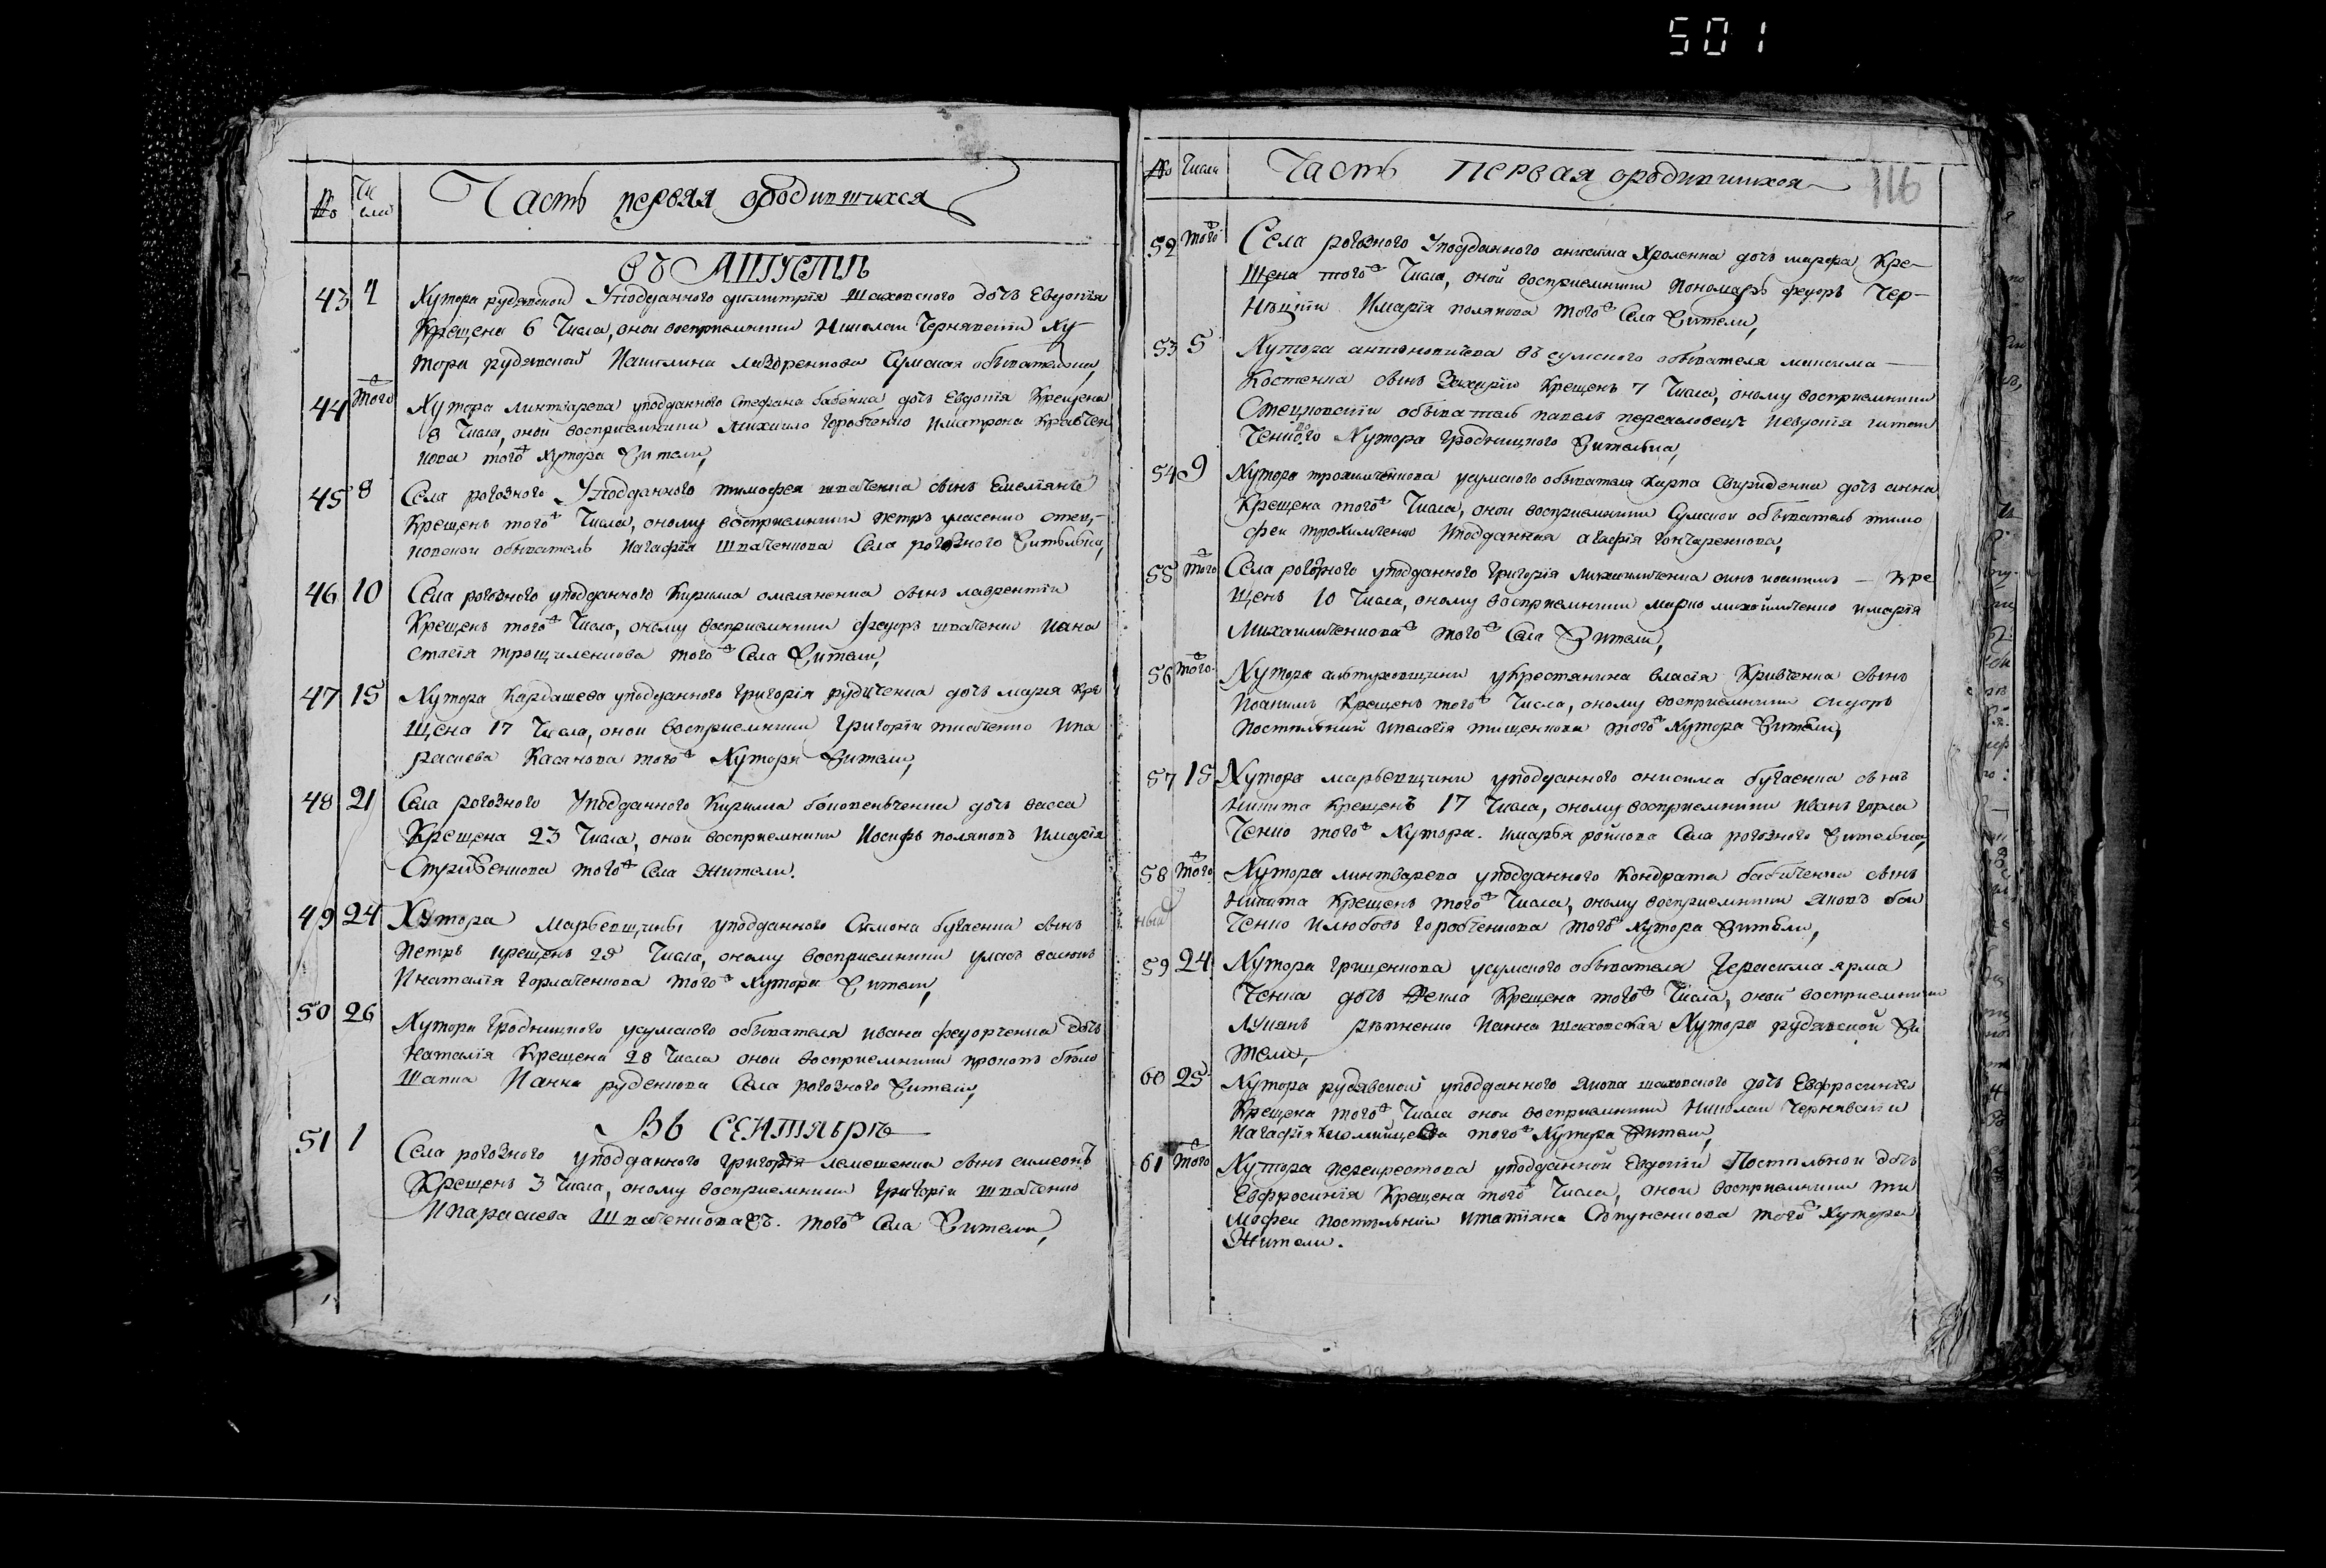 501
№ Чи сла Часть первая ородившихся
въ Августѣ
43 4 Хутора рудевской Уподданного димитрія Шаховского дочь Евдокія
Крещена 6 Числа, оной восприемники Николай Чернявскій Ху-
тора рудевской Сумская обывательница,
44 того Хутора линтварева уподданного Стефана бабенка дочь Евдокія Крещена
8 Числа, оной восприемники Михайло горобченко Иматрона Кравчен
кова того Хутора Жители,
45 8 Села рогозного Уподданного тимофея шпаченка сынъ Емеліянъ
Крещенъ того Числа, оному восприемники петръ уласенко
обыватель Иагафія Шпаченкова Села рогозного Жительна,
46 10 Села рогозного уподданного Кирилла омеляненка сынъ лаврентій
Крещенъ того Числа, оному восприемники феодоръ шпаченко Иана
стасія трощиленкова того Села Жители,
47 15 Хутора Кардашева уподданного григорія рудиченка дочь марія Кре
щена 17 Числа, оной восприемники Григорій Ипа
раскева Касянова того Хутора Жители,
48 21 Села рогозного Уподданного Кирилла дочь васса
Крещена 23 Числа, оной восприемники Иосифъ поляковъ Имарія
того Села Жители.
49 24 Хутора Марьевщины уподданного Симона бугаенка сынъ
Петръ крещенъ 25 Числа, оному восприемники уласъ
Инаталія горлаченкова того Хутора Жители,
50 26 Хутора гродницкого усумского обывателя ивана феодорченка дочь
Наталія Крещена 28 Числа оной восприемники прокопъ бѣло
шапка Ианна руденкова Села рогозного Жители,
Въ СЕНТЯБРѢ
51 1 Села рогозного уподданного григорія лемешенка сынъ симеонъ
Крещенъ 3 Числа, оному восприемники Григорій шпаченко
Ипараскева Шпаченкова того Села Жители,
№ Числа Часть первая ородившихся 116
52 того Села рогозного Уподданного анисима Хроленка дочь марфа Кре-
щена того Числа, оной восприемники Пономарь феодоръ Чер-
Имарія полякова того Села Жители,
53 5 Хутора антоновичева въ сумского обывателя максима
Костенка сынъ Захарій Крещенъ 7 Числа, оному восприемники
обыватель павелъ Иевдокія
Хутора гродницкого Жительна,
54 9 Хутора трохимченкова усумского обывателя Карпа Свириденка дочь анна
Крещена того Числа, оной восприемники Сумской обыватель тимо
фей трохимченко Иподданная агафія гончаренкова,
55 того Села рогозного уподданного григорія михаильченка сынъ иоакимъ — Кре
щенъ 10 Числа, оному восприемники марко михайличенко имарія
Михаильченкова того Села Жители,
56 того Хутора алтуховщини укрестянина власія Кривченка сынъ
Иоакимъ Крещенъ того Числа, оному восприемники сидоръ
Постольний Ипелагія тищенкова того Хутора Жители,
57 15 Хутора марьевщини уподданного онисима бугаенка сынъ
Никита Крещенъ 17 Числа, оному восприемники иванъ горла
ченко того Хутора. имарья ройкова Села рогозного Жительна,
58 того Хутора линтварева уподданного Кондрата сынъ
Никита Крещенъ того Числа, оному восприемники Яковъ бой
ченко Илюбовь горобченкова того Хутора Жители,
59 24 Хутора грищенкова усумского обывателя Герасима ярма
ченка дочь Фекла Крещена того Числа, оной восприемники
Лукянъ рѣпненко Ианна шаховская Хутора рудевской Жи
тели,
60 25 Хутора рудевской уподданного Якова шаховского дочь Евфросинія
Крещена того Числа оной восприемники Николай Чернявскій
Иагафія того Хутора Жители,
61 того Хутора перекрестова уподданной Евдокіи Постольной дочь
Евфросинія Крещена того Числа, оной восприемники ти
мофей постольній итатіяна того Хутора
Жители.